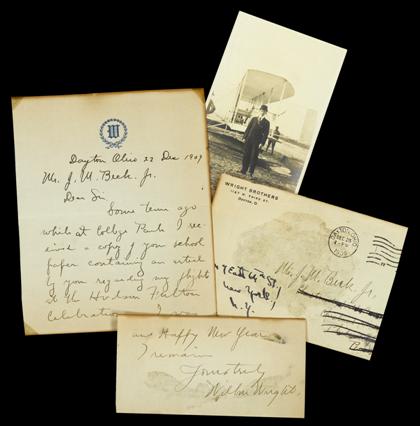 W
Dayton Ohio 22 Dec 1909
Mr. J. M. Beck Jr.
Dear Sir
Some time ago
while at College Park I re-
ceived a copy of your school
paper containing an article
by you regarding my flights
at the Hudson Fulton
Celebration. I was
and Happy New Year
I remain
Yours truly
Wilbur Wright.
WRIGHT BROTHERS
1127 W. THIRD ST.
DAYTON, O.
DAYTON, OHIO
DEC 23
1909
Mr. J. M. Beck, Jr.
New York
N.Y.